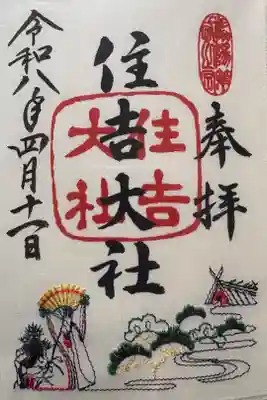 奉拝
住吉大社
住吉大社
令和八年四月十一日